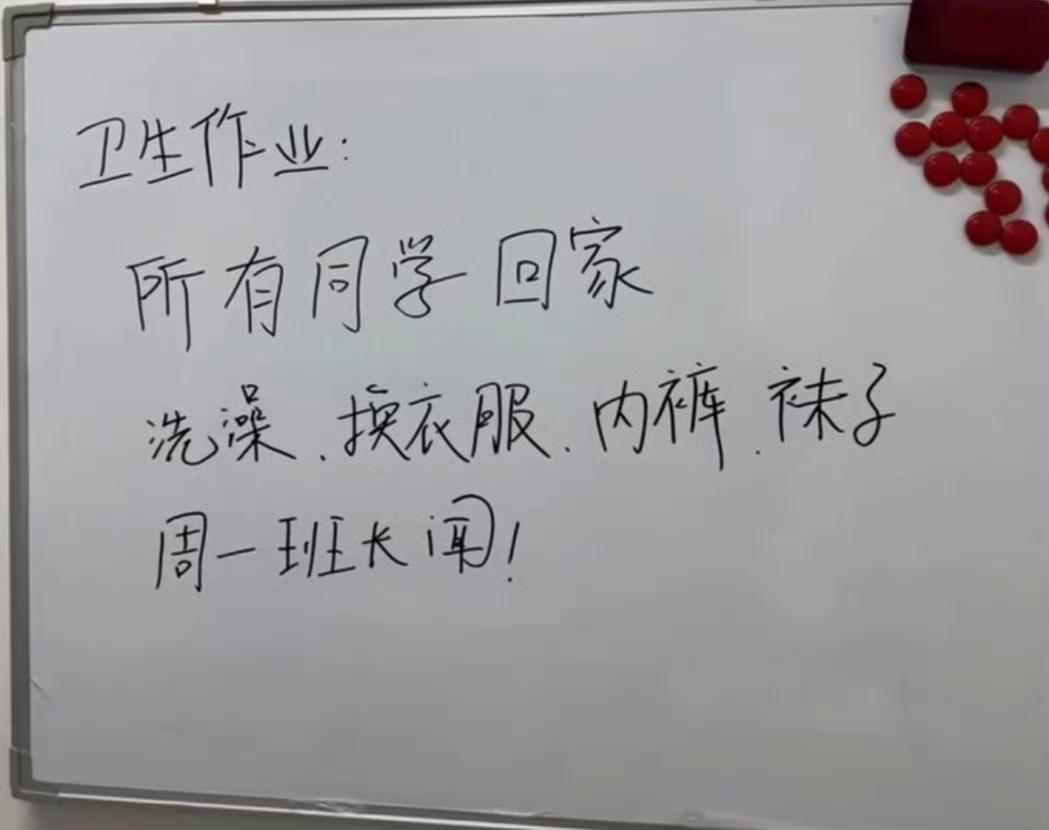 卫生作业:
所有同学回家
洗澡、换衣服、内裤、袜子
周一班长闻!